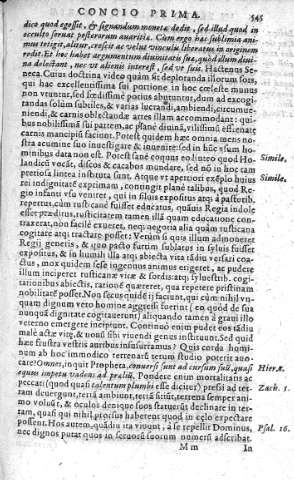 CONCIO PRIMA. 545
dico quod egesse, & signandum moneta dedit, sed illud quod in
occulto seruat pestercorum auaritia. Cum ergo hæc sublimia ani-
mus tetigit, alitur, crescit ac velut vinculis liberatus in originem
redit. Et hoc habet argumentum diuinitatis suæ, quod illum diui-
na delectant, nec vt alienis interest, sed vt suis. Hactenus Se-
neca. Cuius doctrina video quàm sit deplorata illorum sors,
qui hac excellentissima sui portione in hoc cæleste munus
non vtuntur, sed fœdissimè potius abutuntur, dum ad excogi-
tandas solùm subtiles, & varias lucrandi, ambiendi, circumue-
niendi, & carnis oblectandæ artes illam accommodant: qui-
bus nobilissima sui pattem, ac planè diuina, vilissimũ efficeret
carnis mancipiũ faciunt. Potest quidem hæc omnia mens no-
stra acumine suo inuestigare & inuenire: sed in hũc vsum ho-
minibus data non est. Potest sanè coquus eo linteo quod Ho-
landicũ vocãt, discos & catabos mundare, sed nõ in hoc tam
pretiosa lintea instituta sunt. Atque vt apertiori exẽplo huius
rei indignitatẽ exprimam, contingit planè talibus, quod Re-
gio infanti vsu veniret, qui in syluis expositus atq; à pastorib.
repertus, cùm rusticanè fuisset educatus, quãuis Regia indole
esset præditus, rusticitatem tamen illã quam educatione con-
traxerat, non facilè exueret, neq; negotia alia quàm rusticana
cogitare atq; tractare posset. Verùm si quis illum admoneret
Regij generis, & quo pacto furtim sublatus in syluis fuisset
expositus, & in humili illa atq; abiecta vita tãdiu versari coa-
ctus, mox quidem sese ingenuus animus erigeret, ac pudere
illum inciperet rusticanæ vitæ & sordiũ: atq; syluestrib. cogi-
tationibus abiectis, rationẽ quæreret, qua repetere pristinam
nobilitatẽ posset. Non secus quidẽ ij faciunt, qui cùm nihil vn-
quam dignum vero homine aggressi fuerint (eò quòd de sua
nunquã dignitate cogitauerint) aliquando tamen à graui illo
veterno emergere incipiunt. Continuò enim pudet eos tãdiu
malè actæ vitæ, & nouũ sibi viuendi genus instituunt. Sed quid
hæc frustra vestris auribus insusurramus? Quis corda homi-
num ab hoc immodico terrenarũ rerum studio poterit auo-
care? Omnes, inquit Propheta, conuersi sunt ad cursum suũ, quasi
equus impetu vadens ad prælium. Pondere enim mortalitatis ac
peccati (quod quasi talentum plumbi esse dicitur) pressi ad ter-
ram deuergunt, terrã ambiunt, terrã sitiũt, terrena semper ani-
mo voluũt, & oculos denique suos statuerũt declinare in ter-
ram, quasi qui nihil prorsus haberent quod in cælo expectare
possent. Hos autem, quãdiu ita viuunt, à se repellit Dominus,
nec dignos putat quos in seruorũ suorum numero adscribat.
M m In
Simile.
Simile.
Hier. 8.
Zach. 5.
Psal. 16.